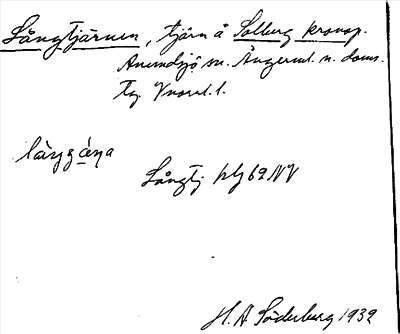 Långtjärnen, tjärn å Solberg kronop.
Anundsjö sn. Ångerml. n. doms.
Tg
låŋgą́ŋa
Långtj. 62 NV
H. A. Söderberg 1932